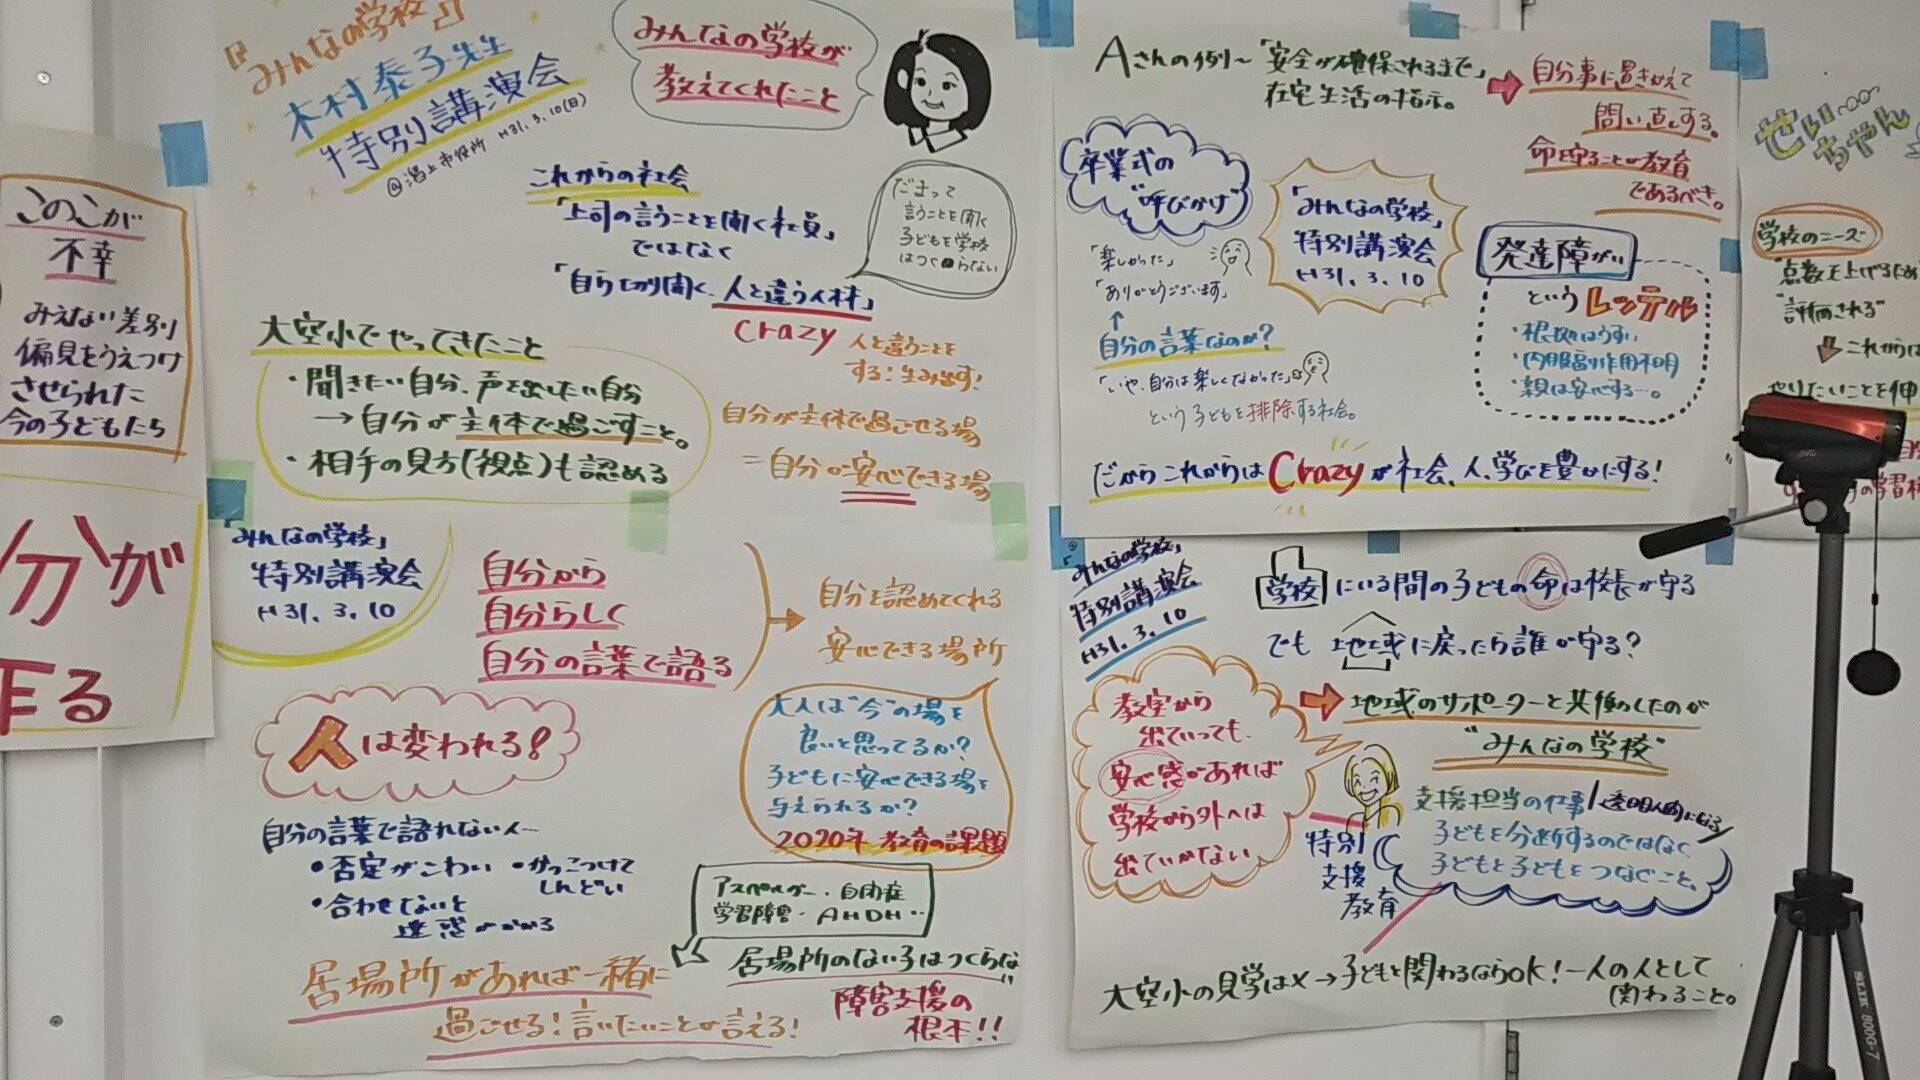 『みんなの学校』
木村泰子先生
特別講演会
@潟上市役所 H31.3.10(日)
みんなの学校が
教えてくれたこと
これからの社会
「上司の言うことを聞く社員」
ではなく
「自ら切り開く、人と違う人材」
crazy
人と違うことを
する!生み出す!
だまって
言うことを聞く
子どもを学校
はつくらない
大空小でやってきたこと
・聞きたい自分、声を出したい自分
→自分が主体で過ごすこと。
・相手の見方(視点)も認める
自分が主体で過ごせる場
=自分が安心できる場
このこが
不幸
みえない差別
偏見をうえつけ
させられた
今の子どもたち
分が
作る
みんなの学校」
特別講演会
H31.3.10
自分から
自分らしく
自分の言葉で語る
自分を認めてくれる
安心できる場所
人は変われる!
大人は"今"の場を
良いと思ってるか?
子どもに安心できる場を
与えられるか?
2020年 教育の課題
自分の言葉で語れない人…
・否定がこわい
・かっこつけて
しんどい
・合わせないと
迷惑がかかる
アスペルガー・自閉症
学習障害・AHDH…
居場所のない子はつくらない
障害支援の
根本!!
居場所があれば一緒に
過ごせる!言いたいことが言える!
Aさんの例～「安全が確保されるまで」
在宅生活の指示。
自分事に置きかえて
問い直しする。
命を守ることが教育
であるべき。
卒業式の
"呼びかけ"
「楽しかった」
「ありがとうございます」
↑
自分の言葉なのか?
「いや、自分は楽しくなかった」
という子どもを排除する社会。
「みんなの学校」
特別講演会
H31.3.10
発達障がい
というレッテル
・根拠はうすい
・内服副作用不明
・親は安心する…。
だからこれからはCrazyが社会、人、学びを豊かにする!
「みんなの学校」
特別講演会
H31.3.10
学校にいる間の子どもの命は校長が守る
でも 地域に戻ったら誰が守る?
地域のサポーターと共働したのが
"みんなの学校"
教室から
出ていっても、
安心感があれば
学校から外へは
出ていかない
特別
支援
教育
支援担当の仕事/透明人間になる/
子どもを分断するのではなく
子どもと子どもをつなぐこと。
大空小の見学は×→子どもと関わるならOK!一人の人として
関わること。
せい
ちゃん
学校のニーズ
"点数を上げるため
"評価される"
これからは
やりたいことを伸
の学習権
JVC
SLIK 800G-7